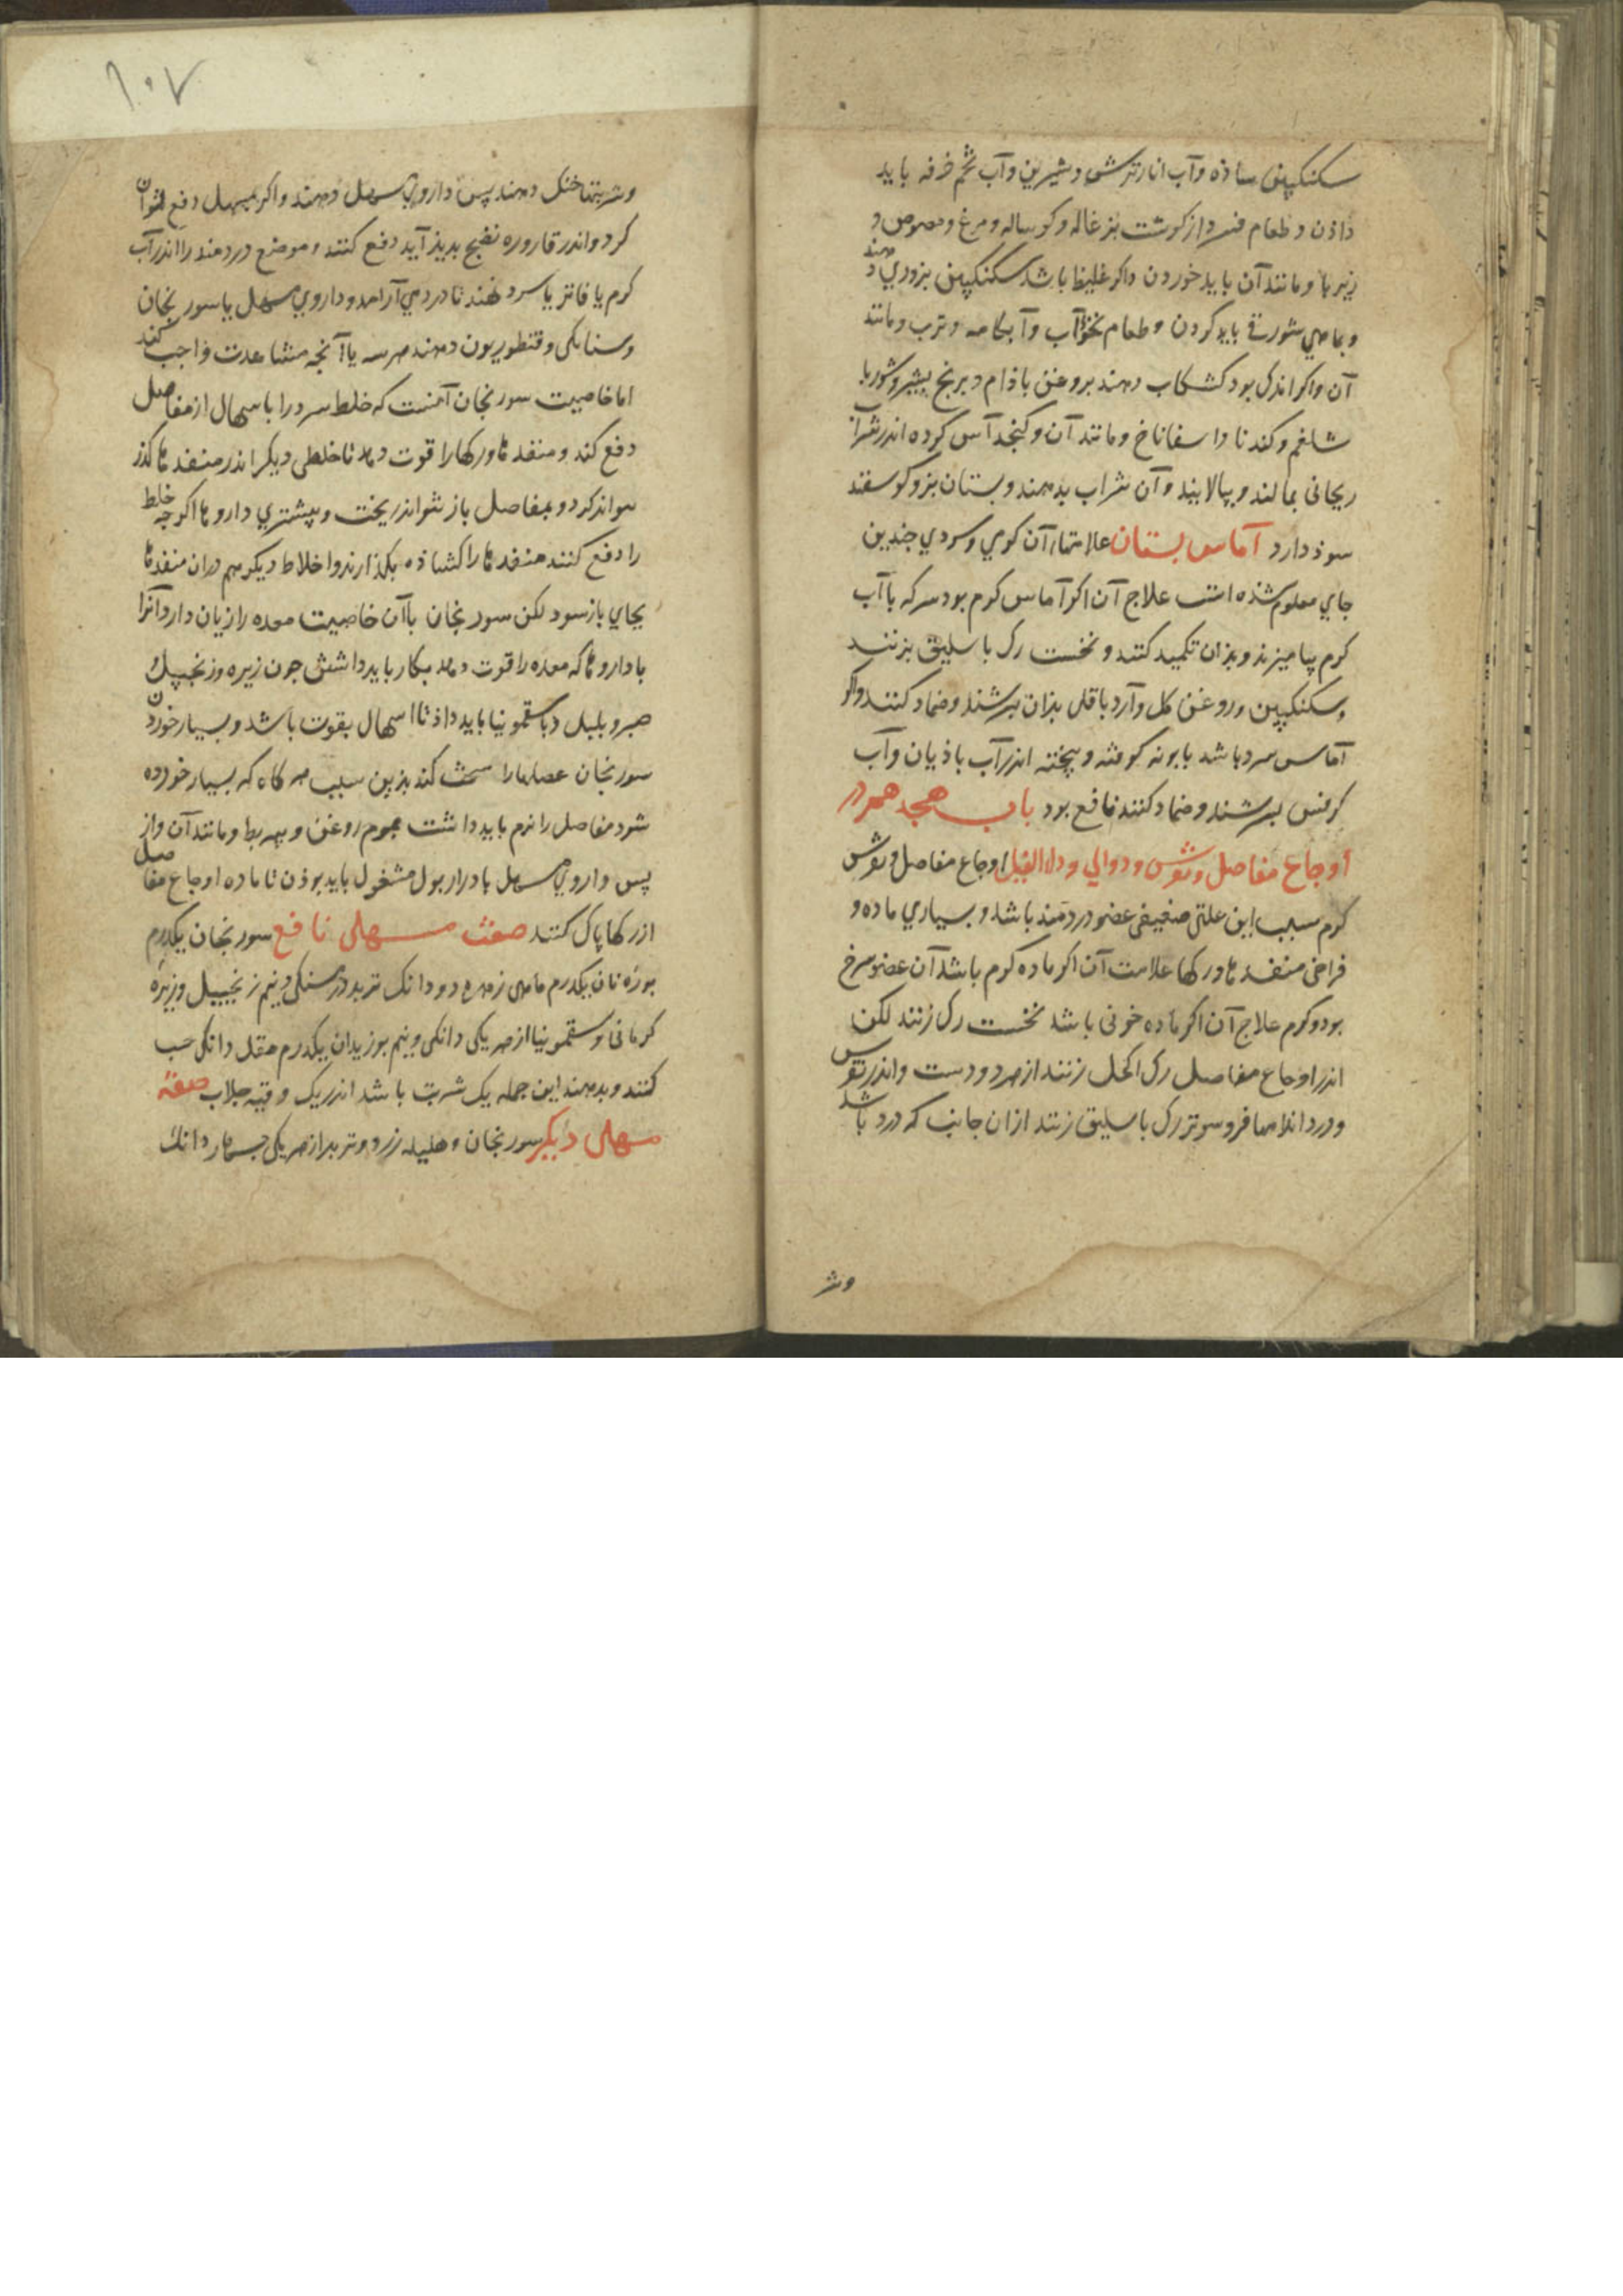 سکنکبین ساذه وآب انار ترش وشیرین وآب تخم خرفه باید
داذن وطعام فسرد از کوشت بزغاله وکوساله ومرغ ومصوص و
زیربا ومانند آن باید خوردن واکر غلیظ باشد سکنکبین بزوري دهند
وبماهي شور قی باید کردن وطعام نخوذآب وآبکامه وترب ومانند
آن واکر اندک بود کشکاب دهند بروغن باذام وبرنج بشیر وشوربا
شلغم وکندنا واسفاناخ ومانند آن وکنجد آس کرده اندر شراب
ریحانی بمالند وبپالایند وآن شراب بدهند وپستان بز وکوسفند
سوذ دارد آماس پستان علامتهاء آن کرمي وسردي جندین
جاي معلوم شذه است علاج آن اکر آماس کرم بود سرکه با آب
کرم بیامیزند وبذان تکمید کنند ونخست رک باسلیق بزنند
وسکنکبین وروغن کل وآرد باقلی بذان بسرشند وضماد کنند واکر
آماس سرد باشد بابونه کوفته وپخته اندر آب باذیان وآب
کرفس بسرشند وضماد کنند نافع بود باب هجدهم در
اوجاع مفاصل ونقرس ودوالي وداء الفیل اوجاع مفاصل ونقرس
کرم سبب این علتی ضعیفی عضو دردمند باشد وبسیاري ماده و
فراخی منفذها ورکها علامت آن اکر ماده کرم باشد آن عضو سرخ
بود وکرم علاج آن اکر ماده خونی باشد نخست رک زنند لکن
اندر اوجاع مفاصل رک اکحل زنند از هر دو دست واندر نقرس
ودرد اندامها فروسوتر رک باسلیق زنند از آن جانب که درد باشد
وشر
۱۰۷
وشربتها خنک دهند پس داروي مسهل دهند واکر بمسهل دفع نتوان
کرد واندر قاروره نضج بدیذ آید دفع کنند وموضع دردمند را اندر آب
کرم یا فاتر یا سرد نهند تا درد مي آرامد وداروي مسهل یا سورنجان
وسنا مکی وقنطوریون دهند هر سه یا آنچه مشاهدت واجب کند
اما خاصیت سورنجان آنست که خلط سرد را باسهال از مفاصل
دفع کند ومنفذها ورکها را قوت دهد تا خلطی دیکر اندر منفذها کذر
نتواند کرد وبمفاصل باز نتواند ریخت وبیشتري داروها اکرچه خلط
را دفع کنند منفذها را کشاذه بکذارند واخلاط دیکر هم در آن منفذها
بجاي باز شود لکن سورنجان با آن خاصیت معده را زیان دارد وآنرا
با داروها که معده را قوت دهد بکار باید داشتن جون زیره وزنجبیل و
صبر وپلپل وبا سقمونیا باید داذ تا اسهال بقوت باشد وبسیار خوردن
سورنجان عصبها را سخت کند بذین سبب هر کاه که بسیار خورده
شود مفاصل را نرم باید داشت بموم روغن وپیه بط ومانند آن واز
پس داروي مسهل بادرار بول مشغول باید بوذن تا ماده اوجاع مفاصل
از رکها پاک کنند صفت مسهلی نافع سورنجان یکدرم
بوزه نان یکدرم ماهی زهره دو دانک تربد درمسنکی ونیم زنجبیل وزیره
کرمانی وسقمونیا از هر یکی دانکی ونیم بوزیدان یکدرم مقل دانکی حب
کنند وبدهند این جمله یک شربت باشد اندر یک وقیه جلاب صفة
مسهلی دیکر سورنجان وهلیله زرد وتربد از هر یکی جهار دانک